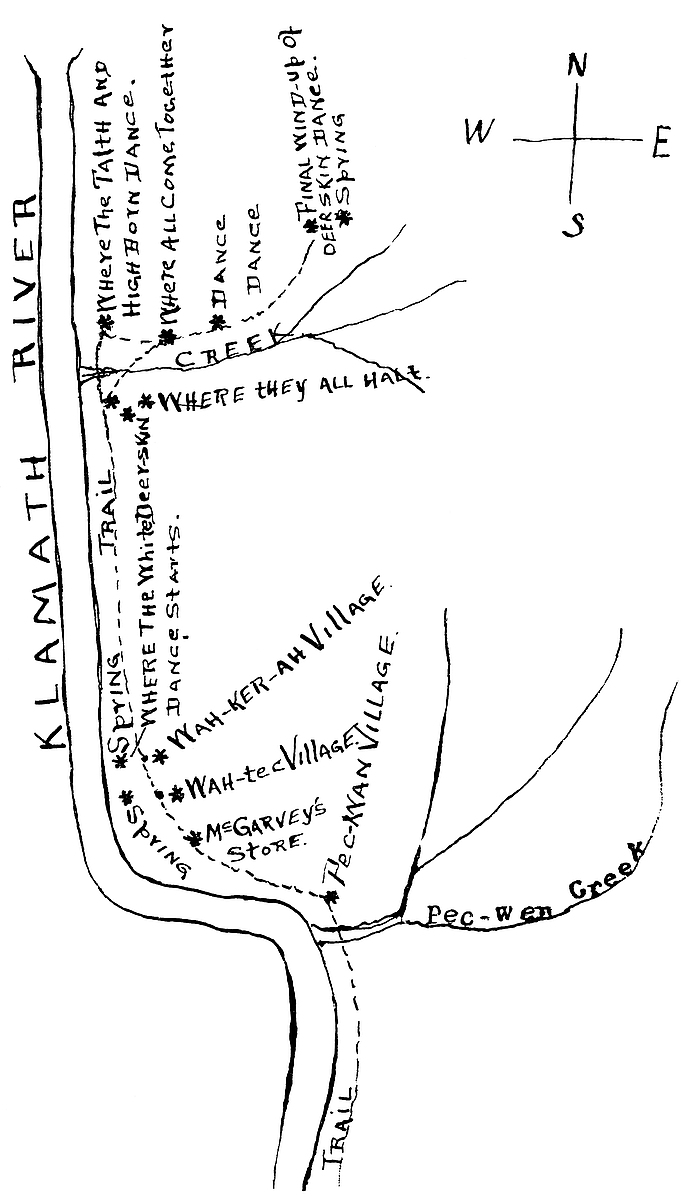 N
W
E
S
KLAMATH RIVER
WHERE THE TALTH AND
HIGH BORN DANCE.
WHERE ALL COME TOGETHER
DANCE
DANCE
FINAL WIND-UP OF
DEERSKIN DANCE.
SPRING
CREEK
WHERE THEY ALL HALT.
TRAIL
SPRING
WHERE THE White Deer-SKIN
DANCE STARTS.
WAH-KER-AH VILLAGE.
WAH-tec VILLAGE.
McGARVEY'S
STORE.
SPRING
PEC-WAN VILLAGE.
Pec-wen Creek
TRAIL